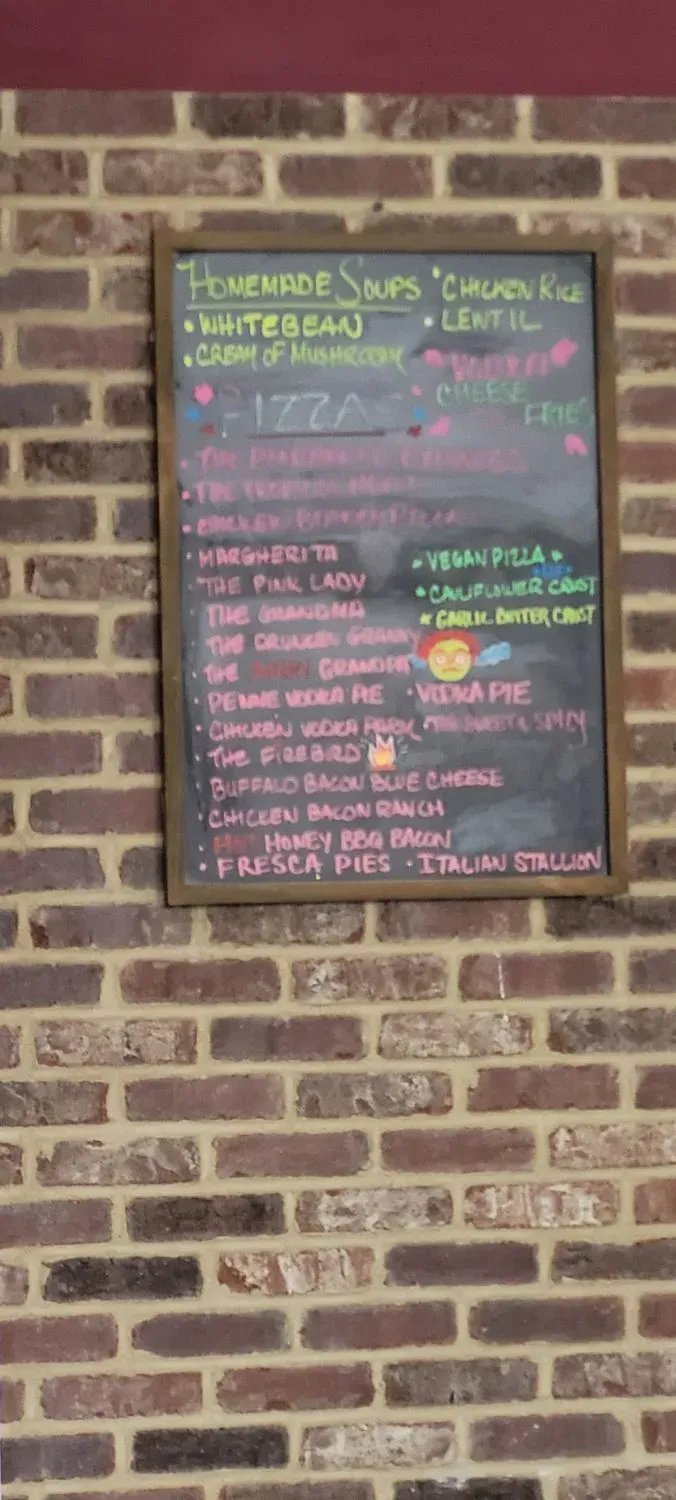 HOMEMADE SOUPS
• WHITEBEAN
• CREAM OF MUSHROOM
• CHICKEN RICE
• LENTIL
VODKA
CHEESE
FRIES
PIZZA
• MARGHERITA
• THE PINK LADY
• THE GRANDMA
• THE DRUNKEN GRANNY
• THE ANGRY GRANDPA
• PENNE VODKA PIE • VODKA PIE
• CHICKEN VODKA PARM • THE SWEET & SPICY
• THE FIREBIRD
• BUFFALO BACON BLUE CHEESE
• CHICKEN BACON RANCH
• HOT HONEY BBQ BACON
• FRESCA PIES • ITALIAN STALLION
• VEGAN PIZZA •
• CAULIFLOWER CRUST
• GARLIC BUTTER CRUST